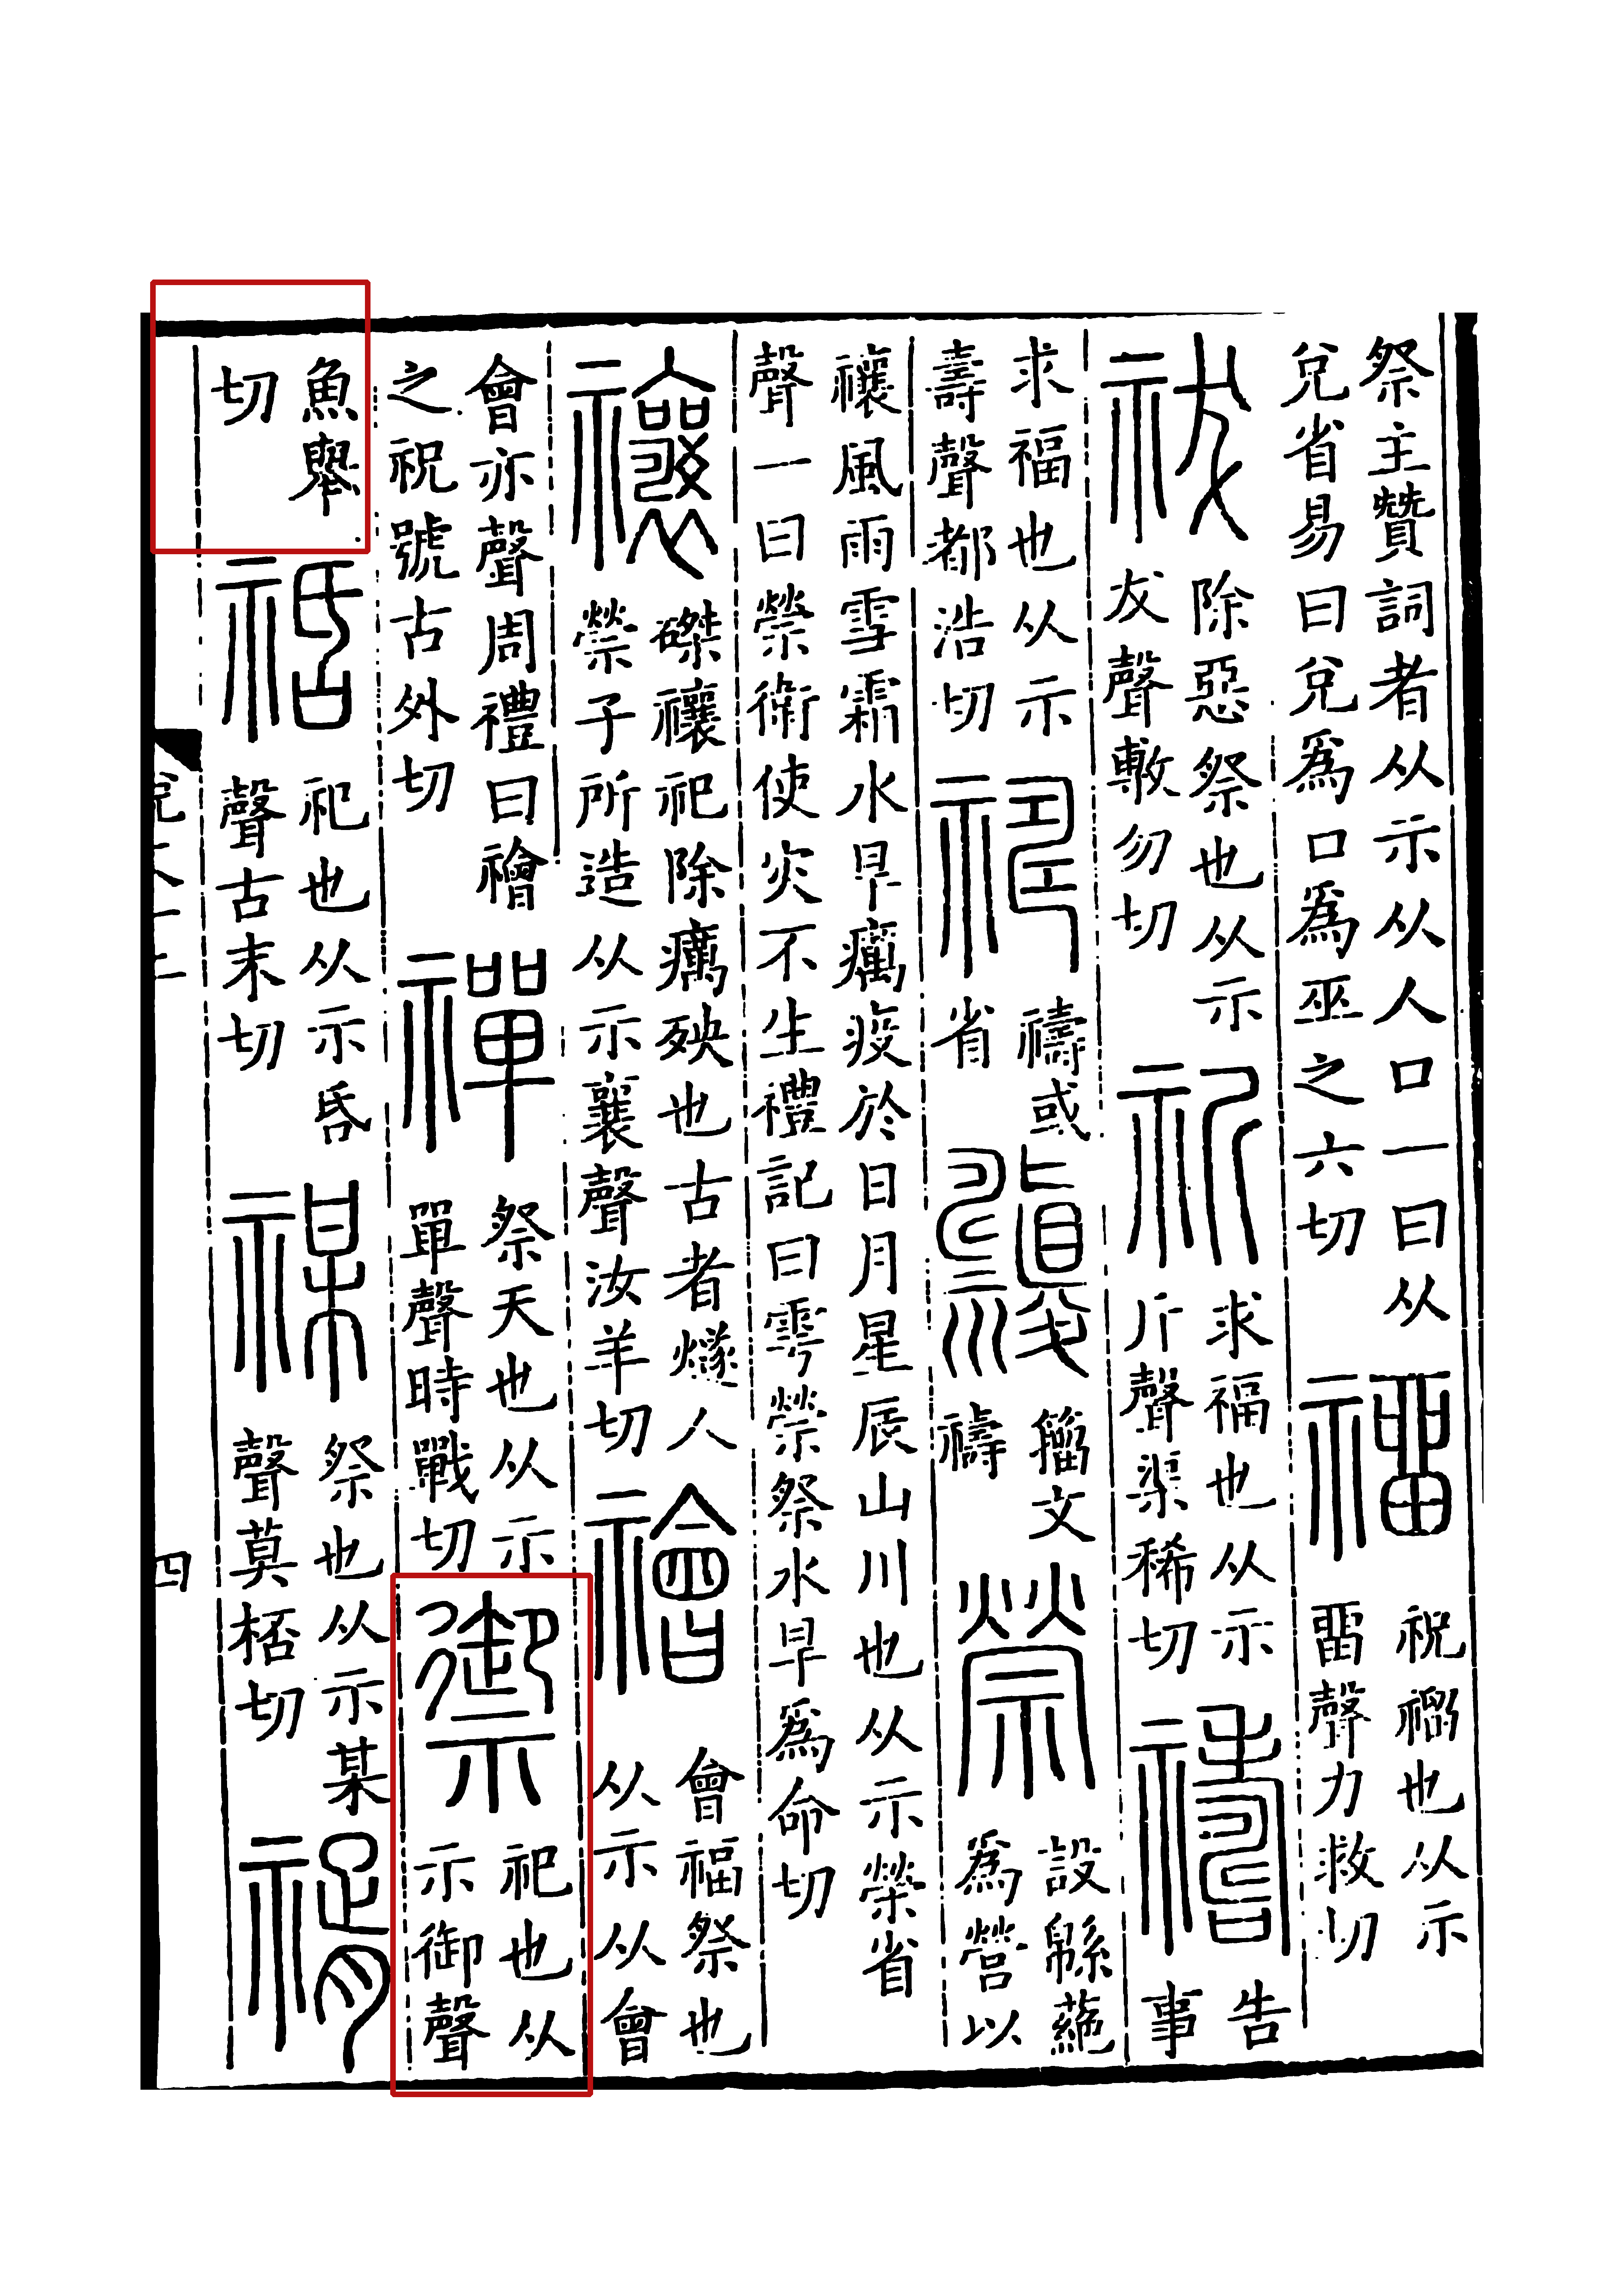 祭主贊詞者从示从人口一曰从
兌省易曰兌爲口爲巫之六切
𥛅
祝𥛅也从示
畱聲力救切
祓
除惡祭也从示
犮聲敷勿切
祈
求福也从示
斤聲渠稀切
禱
告
事
求福也从示
壽聲都浩切
禱或
省
籒文
禱
禜
設緜蕝
爲營以
禳風雨雪霜水旱癘疫於日月星辰山川也从示榮省
聲一曰禜衛使灾不生禮記曰雩禜祭水旱爲命切
禳
磔禳祀除癘殃也古者燧人
禜子所造从示襄聲汝羊切
禬
會福祭也
从示从會
會亦聲周禮曰禬
之祝號古外切
禪
祭天也从示
單聲時戰切
禦
祀也从
示御聲
魚舉
切
䄆
祀也从示𠯑
聲古末切
禖
祭也从示某
聲莫桮切
說文一上
四